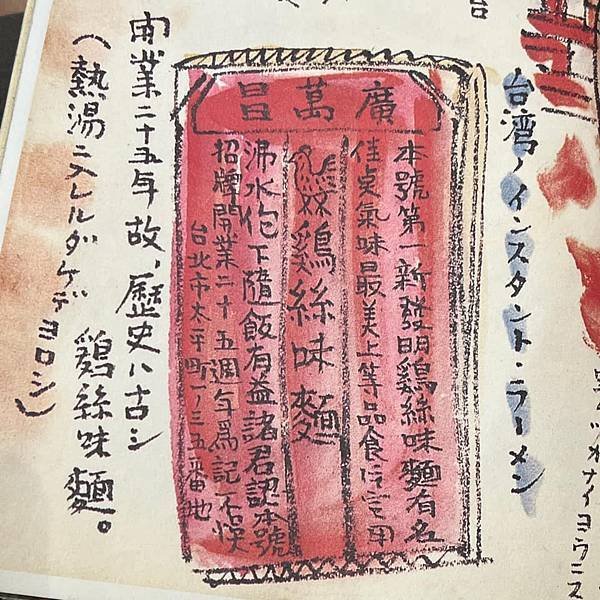 台湾ノインスタント・ラーメン
廣萬昌
本號第一新發明鷄絲味麵有名
佳賣氣味最美上等品食
鷄絲味麵
沸水泡下隨飯有益諸君認本號
招牌開業二十五週年爲記
台北市太平町一ノ三五番地
開業二十五年故、歴史ハ古シ
鷄絲味麵。
(熱湯ニ入レルダケデヨロシ)
台
ナイヨウニス